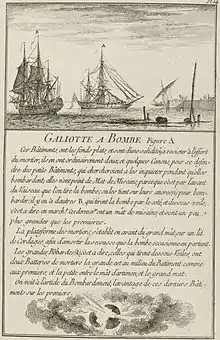 GALIOTTE A BOMBE Figure A
Ces Bâtiments, ont les fonds plats, et sont d'une solidité à resister à l'effort
du mortier, ils en ont ordinairement deux, et quelques Canons pour se défen-
dre des petits Bâtiments, qui chercheroient à les inquieter pendant qu'elles
bombardent; elles n'ont point de Mât de Misaine parce que c'est par l'avant
du Vaisseau que l'on tire la bombe;
bardér, il y en à d'autres B, qui tirent la bombe par le coté, et dessous voile,
c'est a dire en marche; ont un mât de misaine, et sont un peu
plus grandes que les premieres.
La plateforme des mortiers, s'établit en avant du grand mât, sur un lit
de cordages, afin d'amortir la secousse que la bombe occasionne en partant.
Les grandes Bombardes, c'est a dire, celles qui tirent dessous Voiles, ont
deux Batteries de mortiers la grande est au milieu du Bâtiment comme
aux premieres, et la petite entre le mât d'artimon, et le grand mat.
On voit à l'article du Bombardement, l'avantage de ces derniers Bâti-
ments sur les premiers.